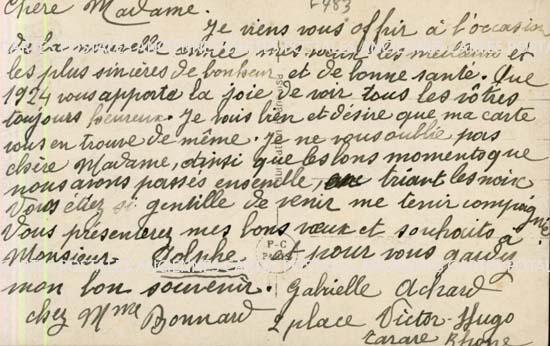 Chère Madame. F483
Je viens vous offrir à l'occasion
de la nouvelle année mes vœux les meilleurs et
les plus sincères de bonheur et de bonne santé. Que
1924 vous apporte la joie de voir tous les vôtres
toujours heureux. Je vais bien et désire que ma carte
vous en trouve de même. Je ne vous oublie pas
chère Madame, ainsi que les bons moments que
nous avons passés ensemble, en triant les noix
Vous étiez si gentille de venir me tenir compagnie.
Vous présenterez mes bons vœux et souhaits à
Monsieur et pour vous gardez
mon bon souvenir. Gabrielle Achard
chez Mme Bonnard 2 place Victor-Hugo
Tarare Rhône
P-C
PARIS